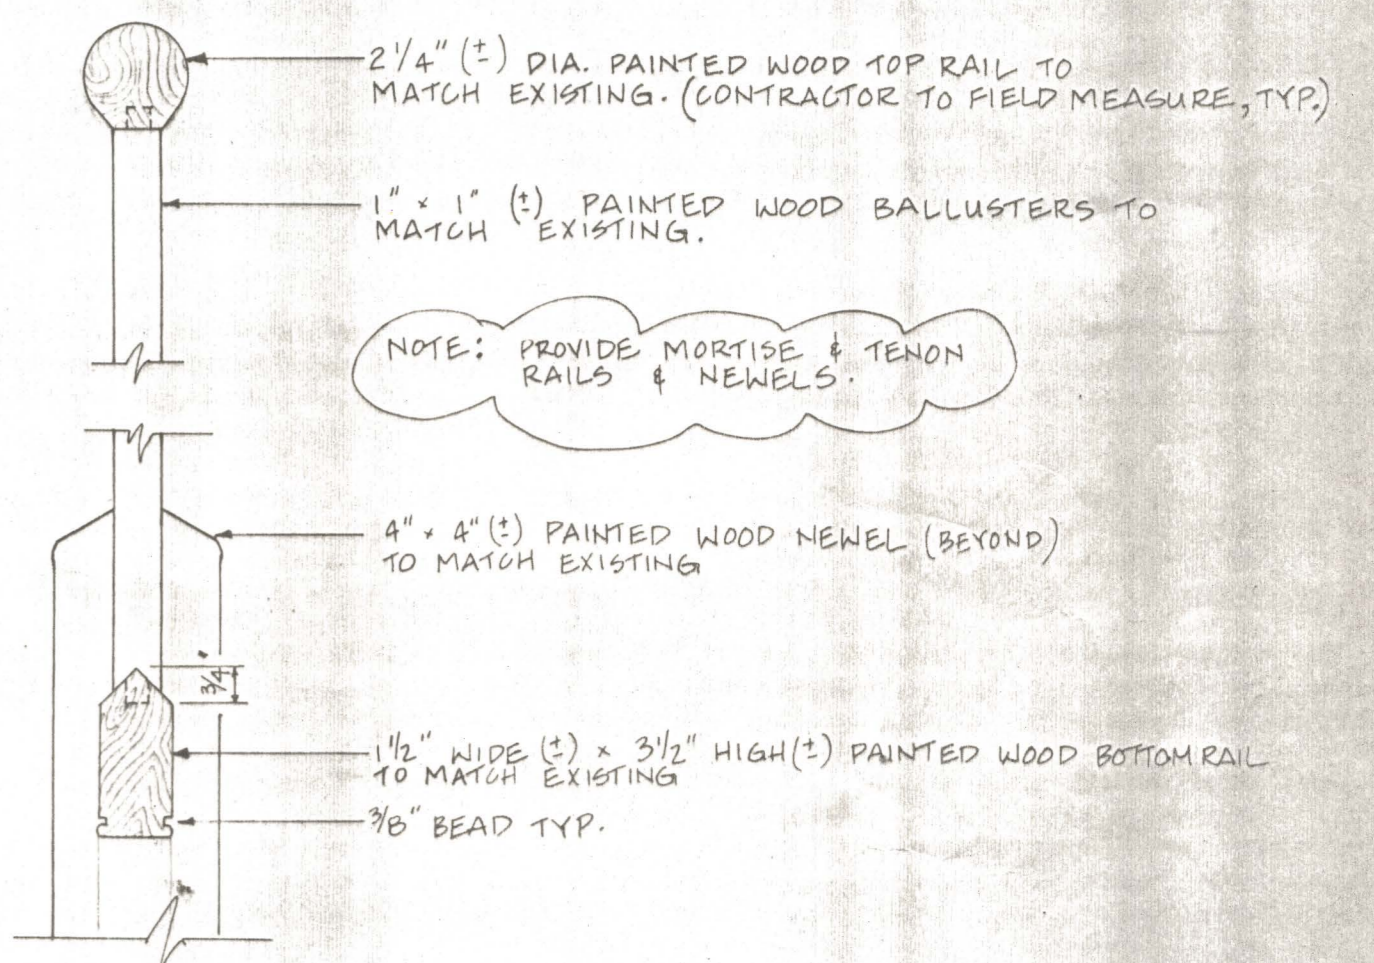 2 1/4" (±) DIA. PAINTED WOOD TOP RAIL TO
MATCH EXISTING. (CONTRACTOR TO FIELD MEASURE, TYP.)
1" x 1" (±) PAINTED WOOD BALLUSTERS TO
MATCH EXISTING.
NOTE: PROVIDE MORTISE & TENON
RAILS & NEWELS.
4" x 4" (±) PAINTED WOOD NEWEL (BEYOND)
TO MATCH EXISTING
3/4"
1 1/2" WIDE (±) x 3 1/2" HIGH (±) PAINTED WOOD BOTTOM RAIL
TO MATCH EXISTING
3/8" BEAD TYP.